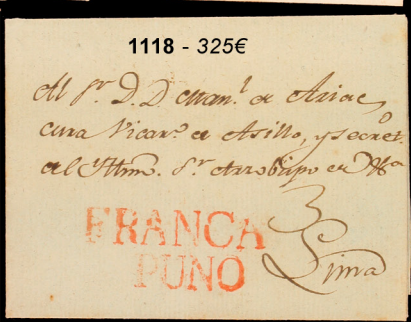 1118 - 325€
Al Sr. D. D. Man.l de Arias,
cura Vicar.o de Asillo, y Secret.o
del Yltmo. Sr. Arzobispo en
Lima
FRANCA
PUNO